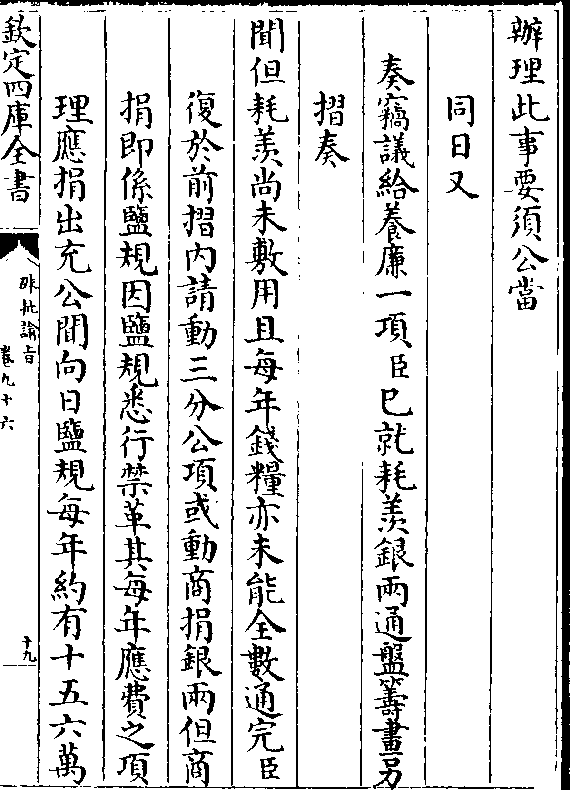 辦理此事要須公當
同日又
奏竊議給養廉一項臣已就耗羨銀兩通盤籌畫另
摺奏
聞但耗羨尚未敷用且每年錢糧亦未能全數通完臣
復於前摺內請動三分公項或動商捐銀兩但商
捐即係鹽規因鹽規悉行禁革其每年應費之項
理應捐出充公閒向日鹽規每年約有十五六萬
欽定四庫全書
硃批諭旨
卷九十六
十九